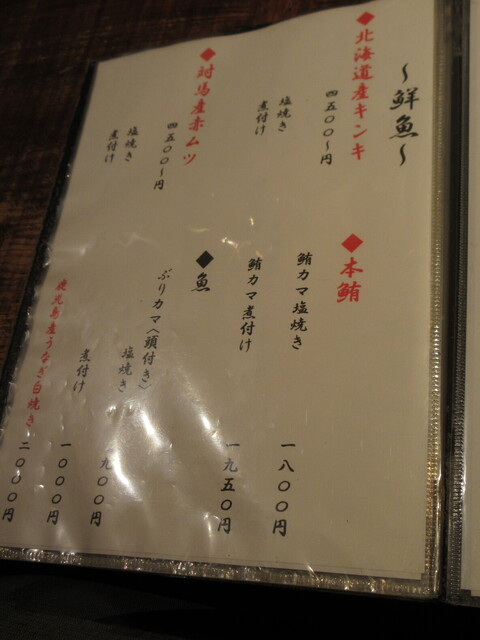 ～鮮魚～
◆北海道産キンキ
四五〇〇～円
塩焼き
煮付け
◆対馬産赤ムツ
四五〇〇～円
塩焼き
煮付け
◆本鮪
鮪カマ塩焼き 一八〇〇円
鮪カマ煮付け 一九五〇円
◆魚
ぶりカマ(頭付き)
塩焼き 九〇〇円
煮付け 一〇〇〇円
鹿児島産うなぎ白焼き 二〇〇〇円